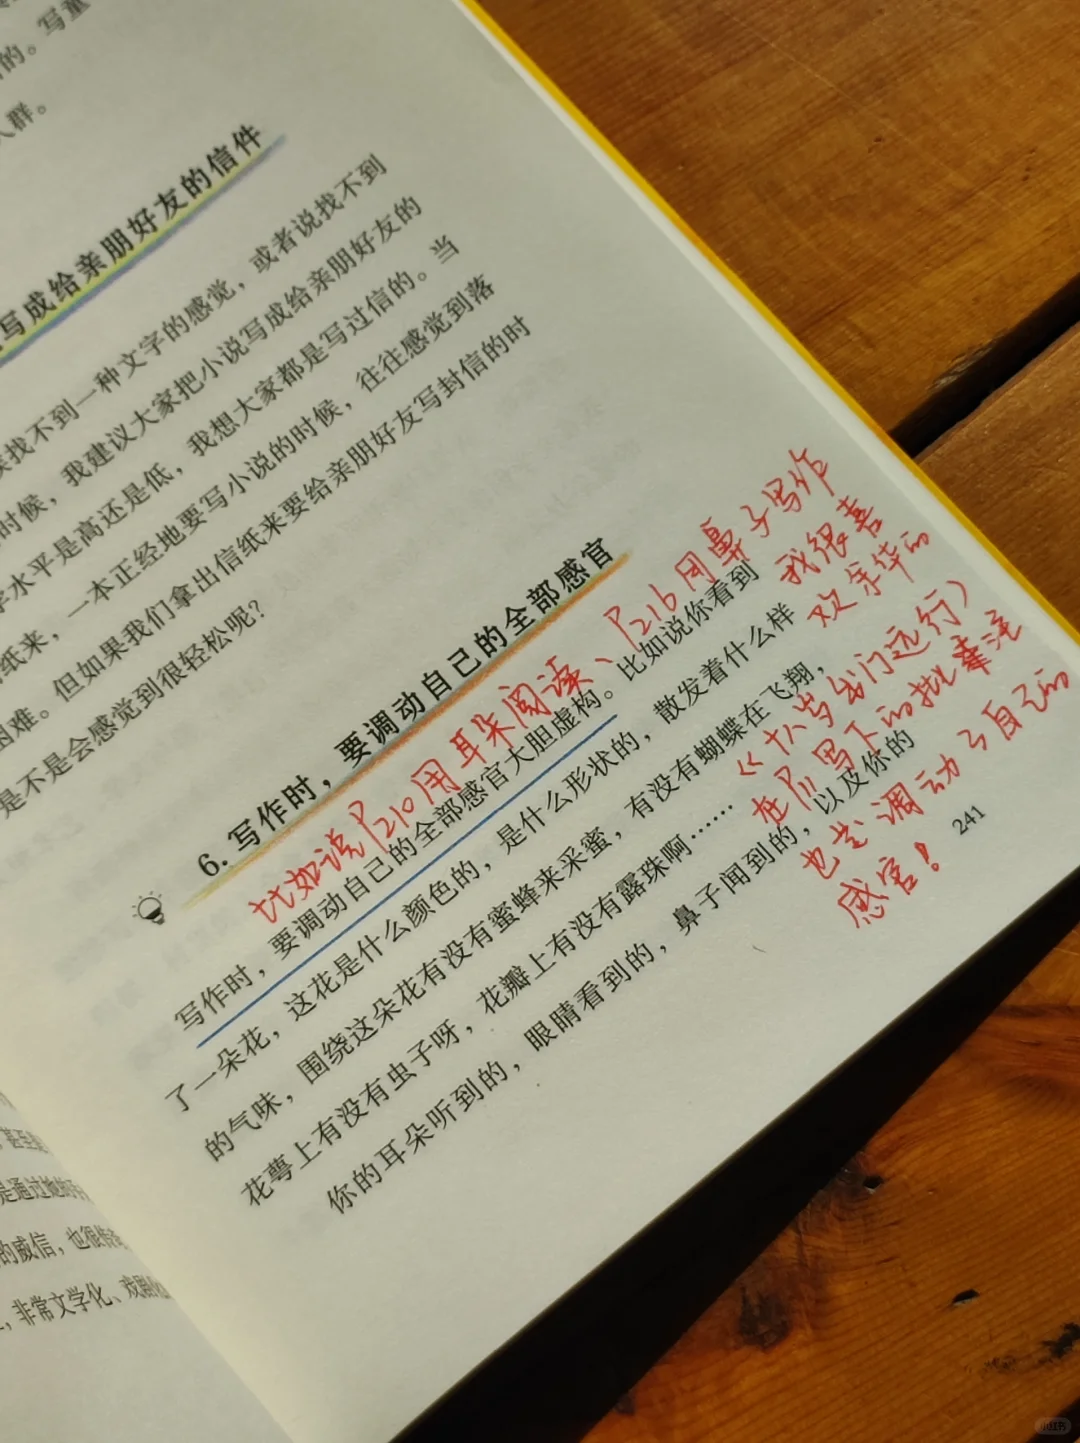 的。写童
人群。
写成给亲朋好友的信件
找不到一种文字的感觉，或者说找不到
时候，我建议大家把小说写成给亲朋好友的
学水平是高还是低，我想大家都是写过信的。当
纸来，一本正经地要写小说的时候，往往感觉到落
困难。但如果我们拿出信纸来要给亲朋好友写封信的时
是不是会感觉到很轻松呢？
6. 写作时，要调动自己的全部感官
比如说P210用耳朵阅读、P216用鼻子写作
写作时，要调动自己的全部感官大胆虚构。比如说你看到
了一朵花，这花是什么颜色的，是什么形状的，散发着什么样
的气味，围绕这朵花有没有蜜蜂来采蜜，有没有蝴蝶在飞翔，
花萼上有没有虫子呀，花瓣上有没有露珠啊……
你的耳朵听到的，眼睛看到的，鼻子闻到的，以及你的
我很喜
欢余华的
《十八岁出门远行》
莫言写下的批注
也是调动了自己的
感官！
241
是通过她的
的威信，也很
非常文学化、戏剧化
小红书